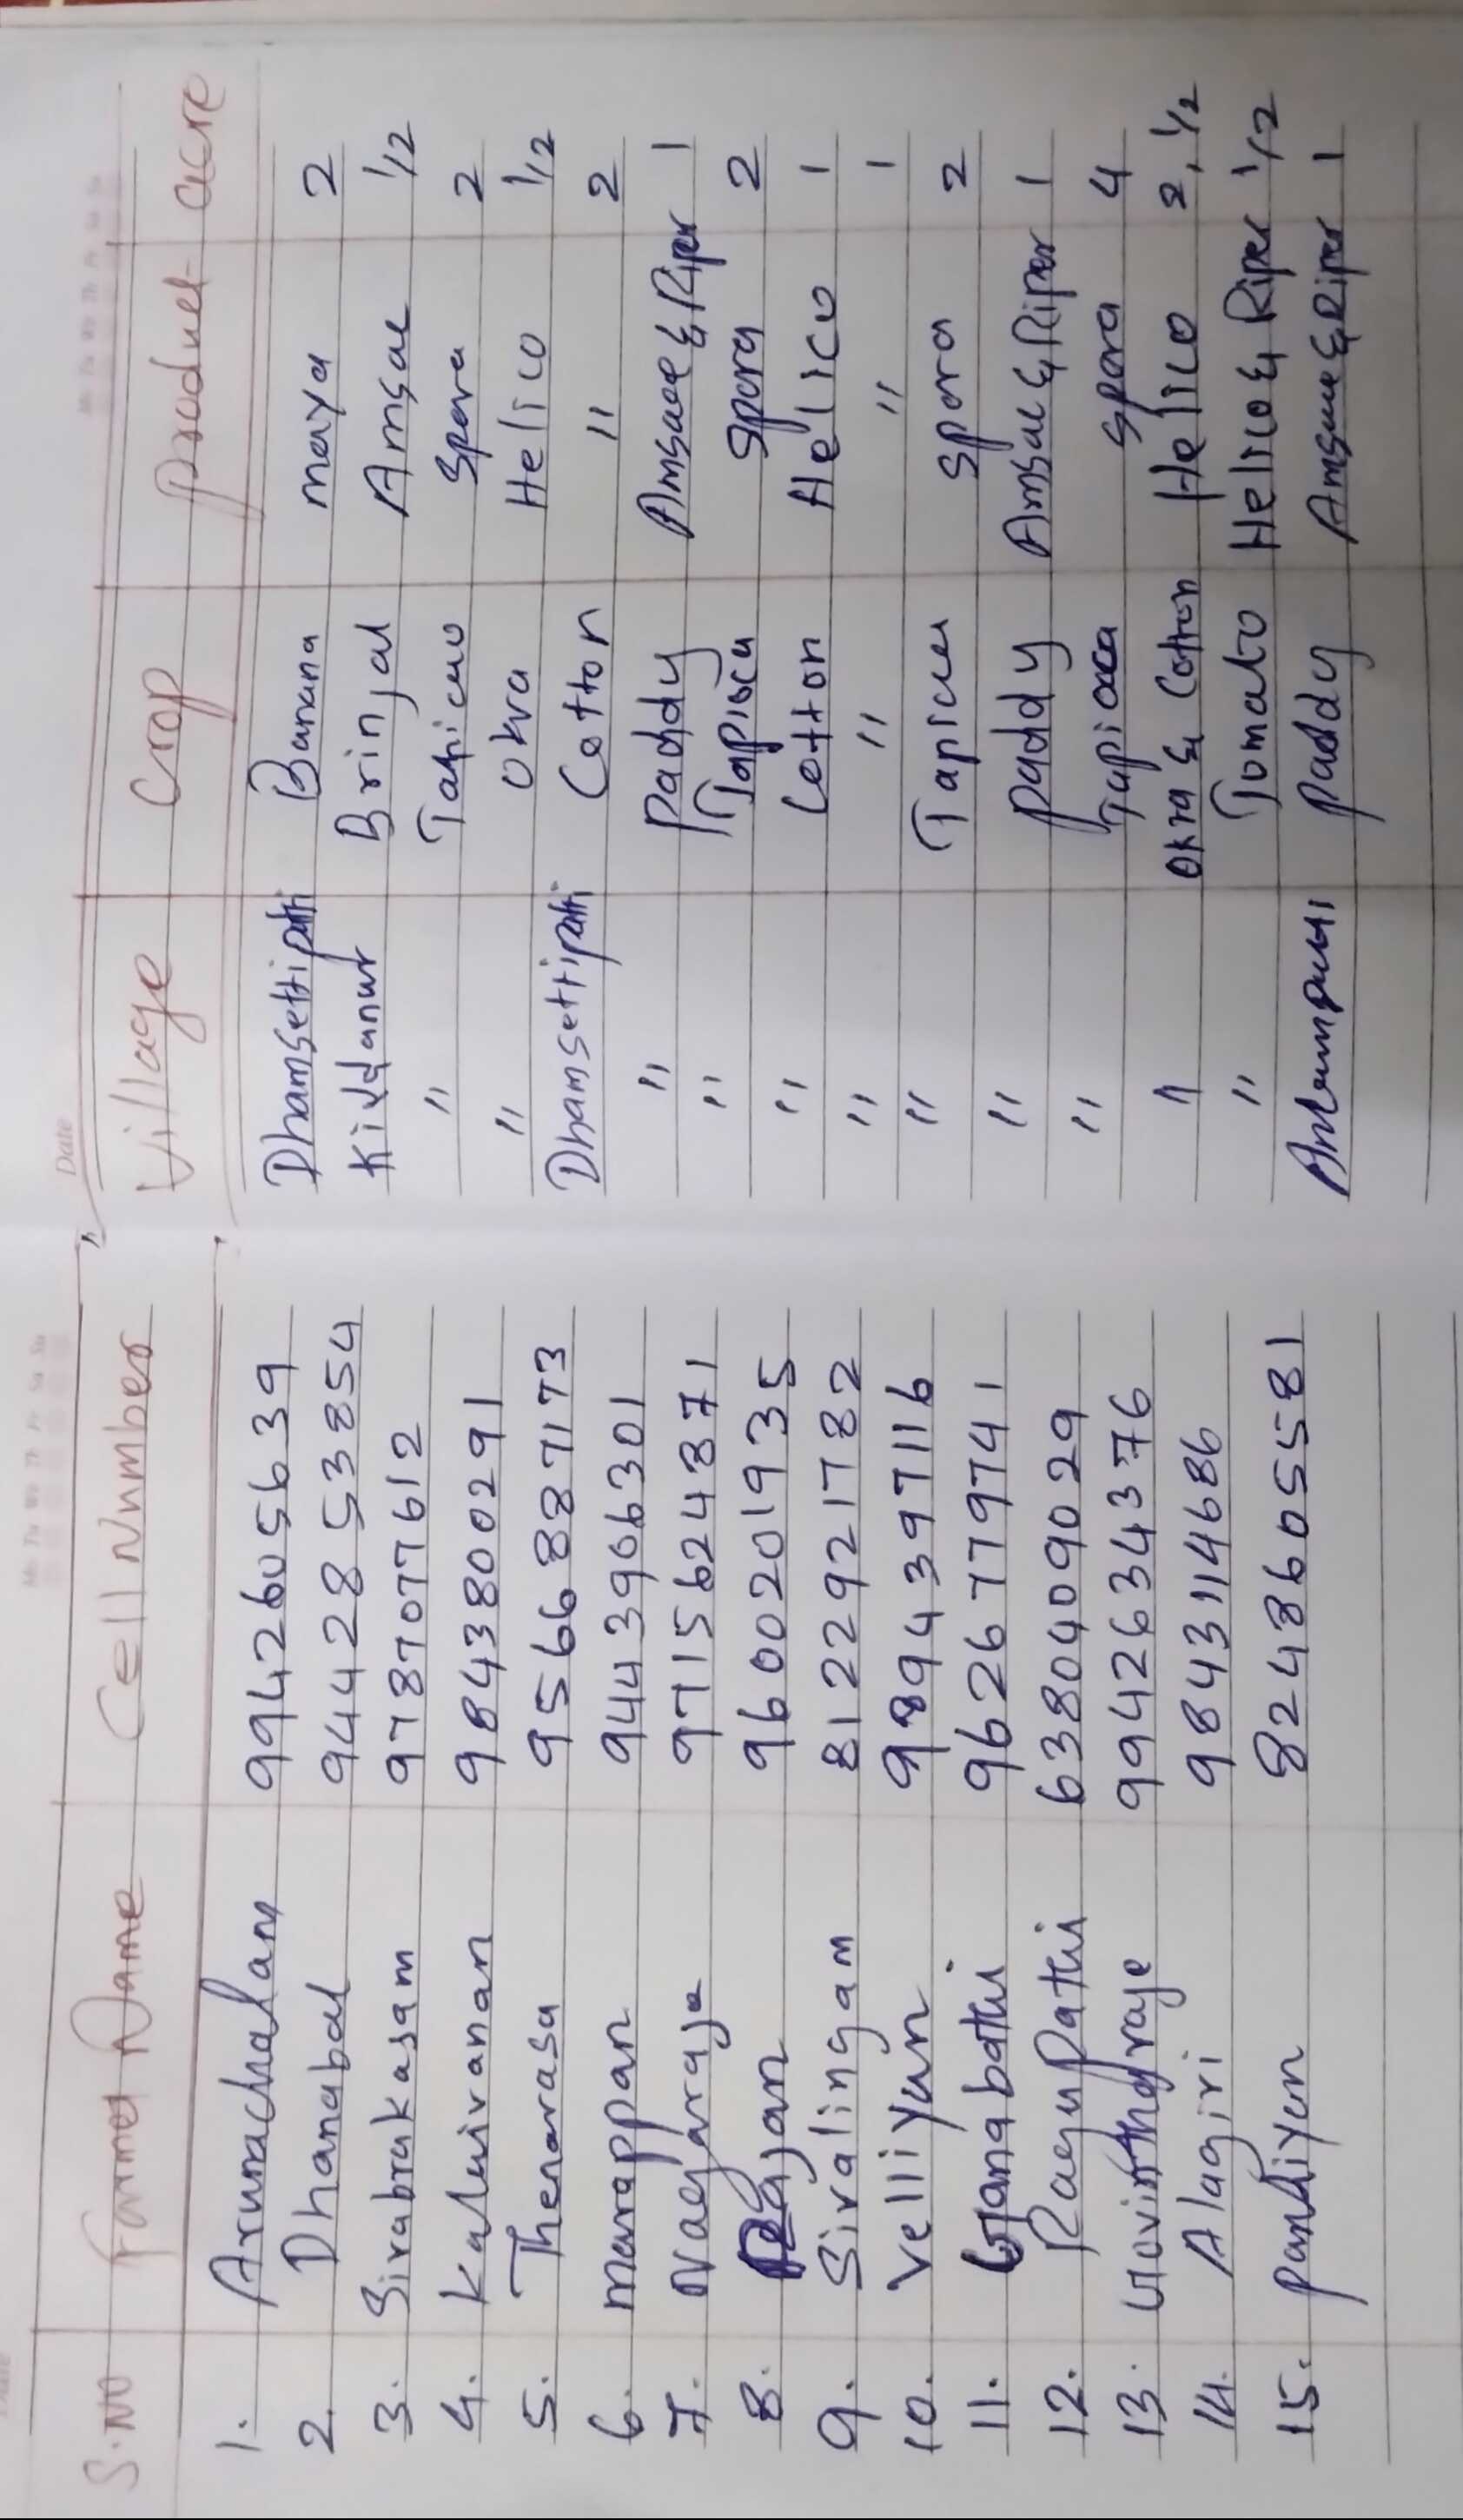 S.NO Farmer Name Cell Number Village Crop Product acre
1. Arunachalam 9942605639 Dhamsettipatti Banana maxa 2
2. Dhanabal 9442853854 Brinjal Amsac 1/2
3. Sivabrakasam 9787077612 " Spora 2
4. Kaluivanan 9843800291 " Okra Helico 1/2
5. Thenarasu 9566887173 Dhamsettipatti Cotton " 2
6. Marappan 9443906301 " Paddy Amsac & Riper 1
7. Nagaraja 9715624871 " Tapioca Spora 2
8. 9600201935 " Cotton Helico 1
9. Sivalingam 8122921782 " " " 1
10. Velliyan 9894397116 " Tapica Spora 2
11. Ganabathi 9626779741 " Paddy Amsac & Riper 1
12. Ragupathi 6380409029 " Tapioca Spora 4
13. 9942634376 " Okra & Cotton Helico 2, 1/2
14. Alagiri 9843114686 " Tomato Helico & Riper 1/2
15. Pandiyan 8248605581 Paddy Amsac & Riper 1
Date